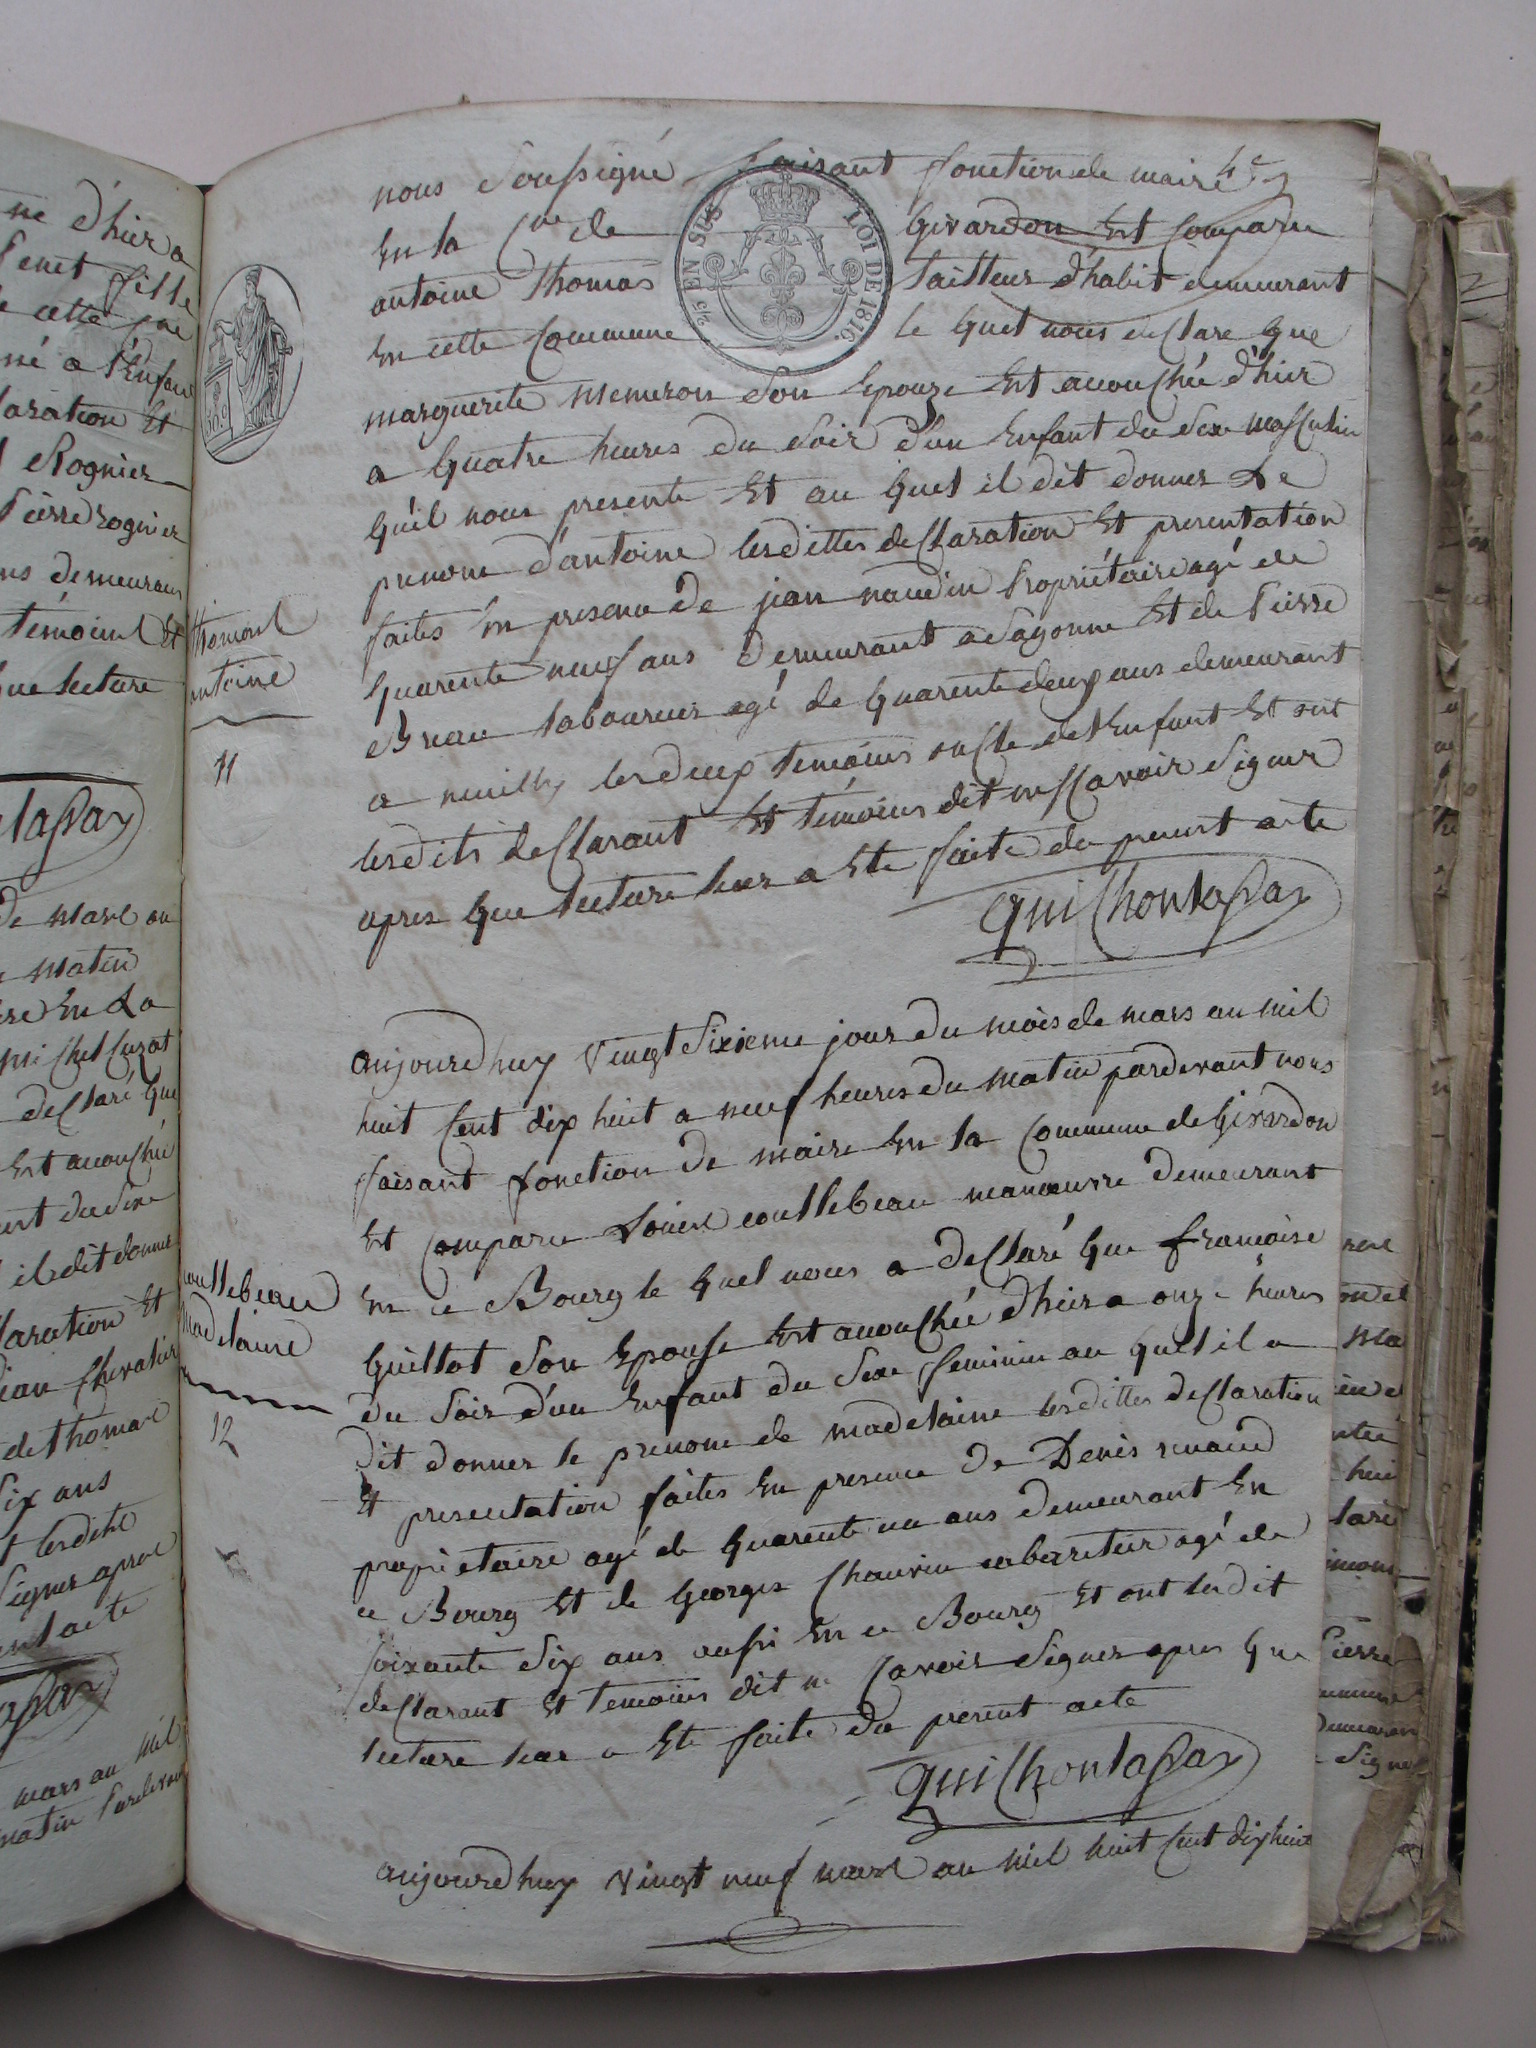 ne d'hier a
Penet fille
cette cne
né a l'Enfant
laration Et
Rognier
Pierre Rognier
ns demeurans
témoins Et
que lecture
de mars an
matin
ire En La
michel Cuzat
declaré que
Est acouchée
ent du Sexe
il dit donner
laration Et
jean Chevalier
de thomas
Six ans
t lesdits
Signer apres
ent acte
mars an mil
matin Pardevant
nous Soussigné faisant fonction de maire 4e
En la Cne de Givardon Est Comparu
antoine thomas tailleur d'habit demeurant
En cette Commune le quel nous declare que
marguerite Meneron Son Epouze Est acouchée d'hier
a quatre heures du Soir d'un Enfant du Sexe masculin
qu'il nous presente Et au quel il dit donner Le
prenom d'antoine lesdittes declaration Et presentation
faites En presence de jean naudin Propriétaire agé de
quarente neuf ans demeurant a Sagonne Et de Pierre
Bruau laboureur agé de quarente deux ans demeurant
a neuilly les deux temoins oncle de l'Enfant Et ont
lesdits declarant Et témoins dit ne Scavoir Signer
apres que lecture leur a Ete faite du present acte
quichontassax
5/c EN SUS LOI DE 1816.
thomas
antoine
11
aujourdhuy vingt Sixieme jour du mois de mars an mil
huit Cent dix huit a neuf heures du matin pardevant nous
faisant fonction de maire En la Commune de Givardon
Est Comparu Louis coullebeau manœuvre demeurant
En ce Bourg le quel nous a declaré que francoise
Guillot Son Epouse Est acouchée d'hier a onze heures
du Soir d'un Enfant du Sexe feminin au quel il a
dit donner le prenom de madelaine lesdittes declaration
Et presentation faites En presence de Denis renaud
proprietaire agé de quarente un ans demeurant En
ce Bourg Et de Georges Chauvin cabaretier agé de
Soixante Six ans aussi En ce Bourg Et ont lesdit
declarant Et temoins dit ne Savoir Signer apres que
lecture leur a Ete faite du present acte
quichontassax
coullebeau
Madelaine
12
aujourdhuy vingt neuf mars an mil huit Cent dix huit
Pierre